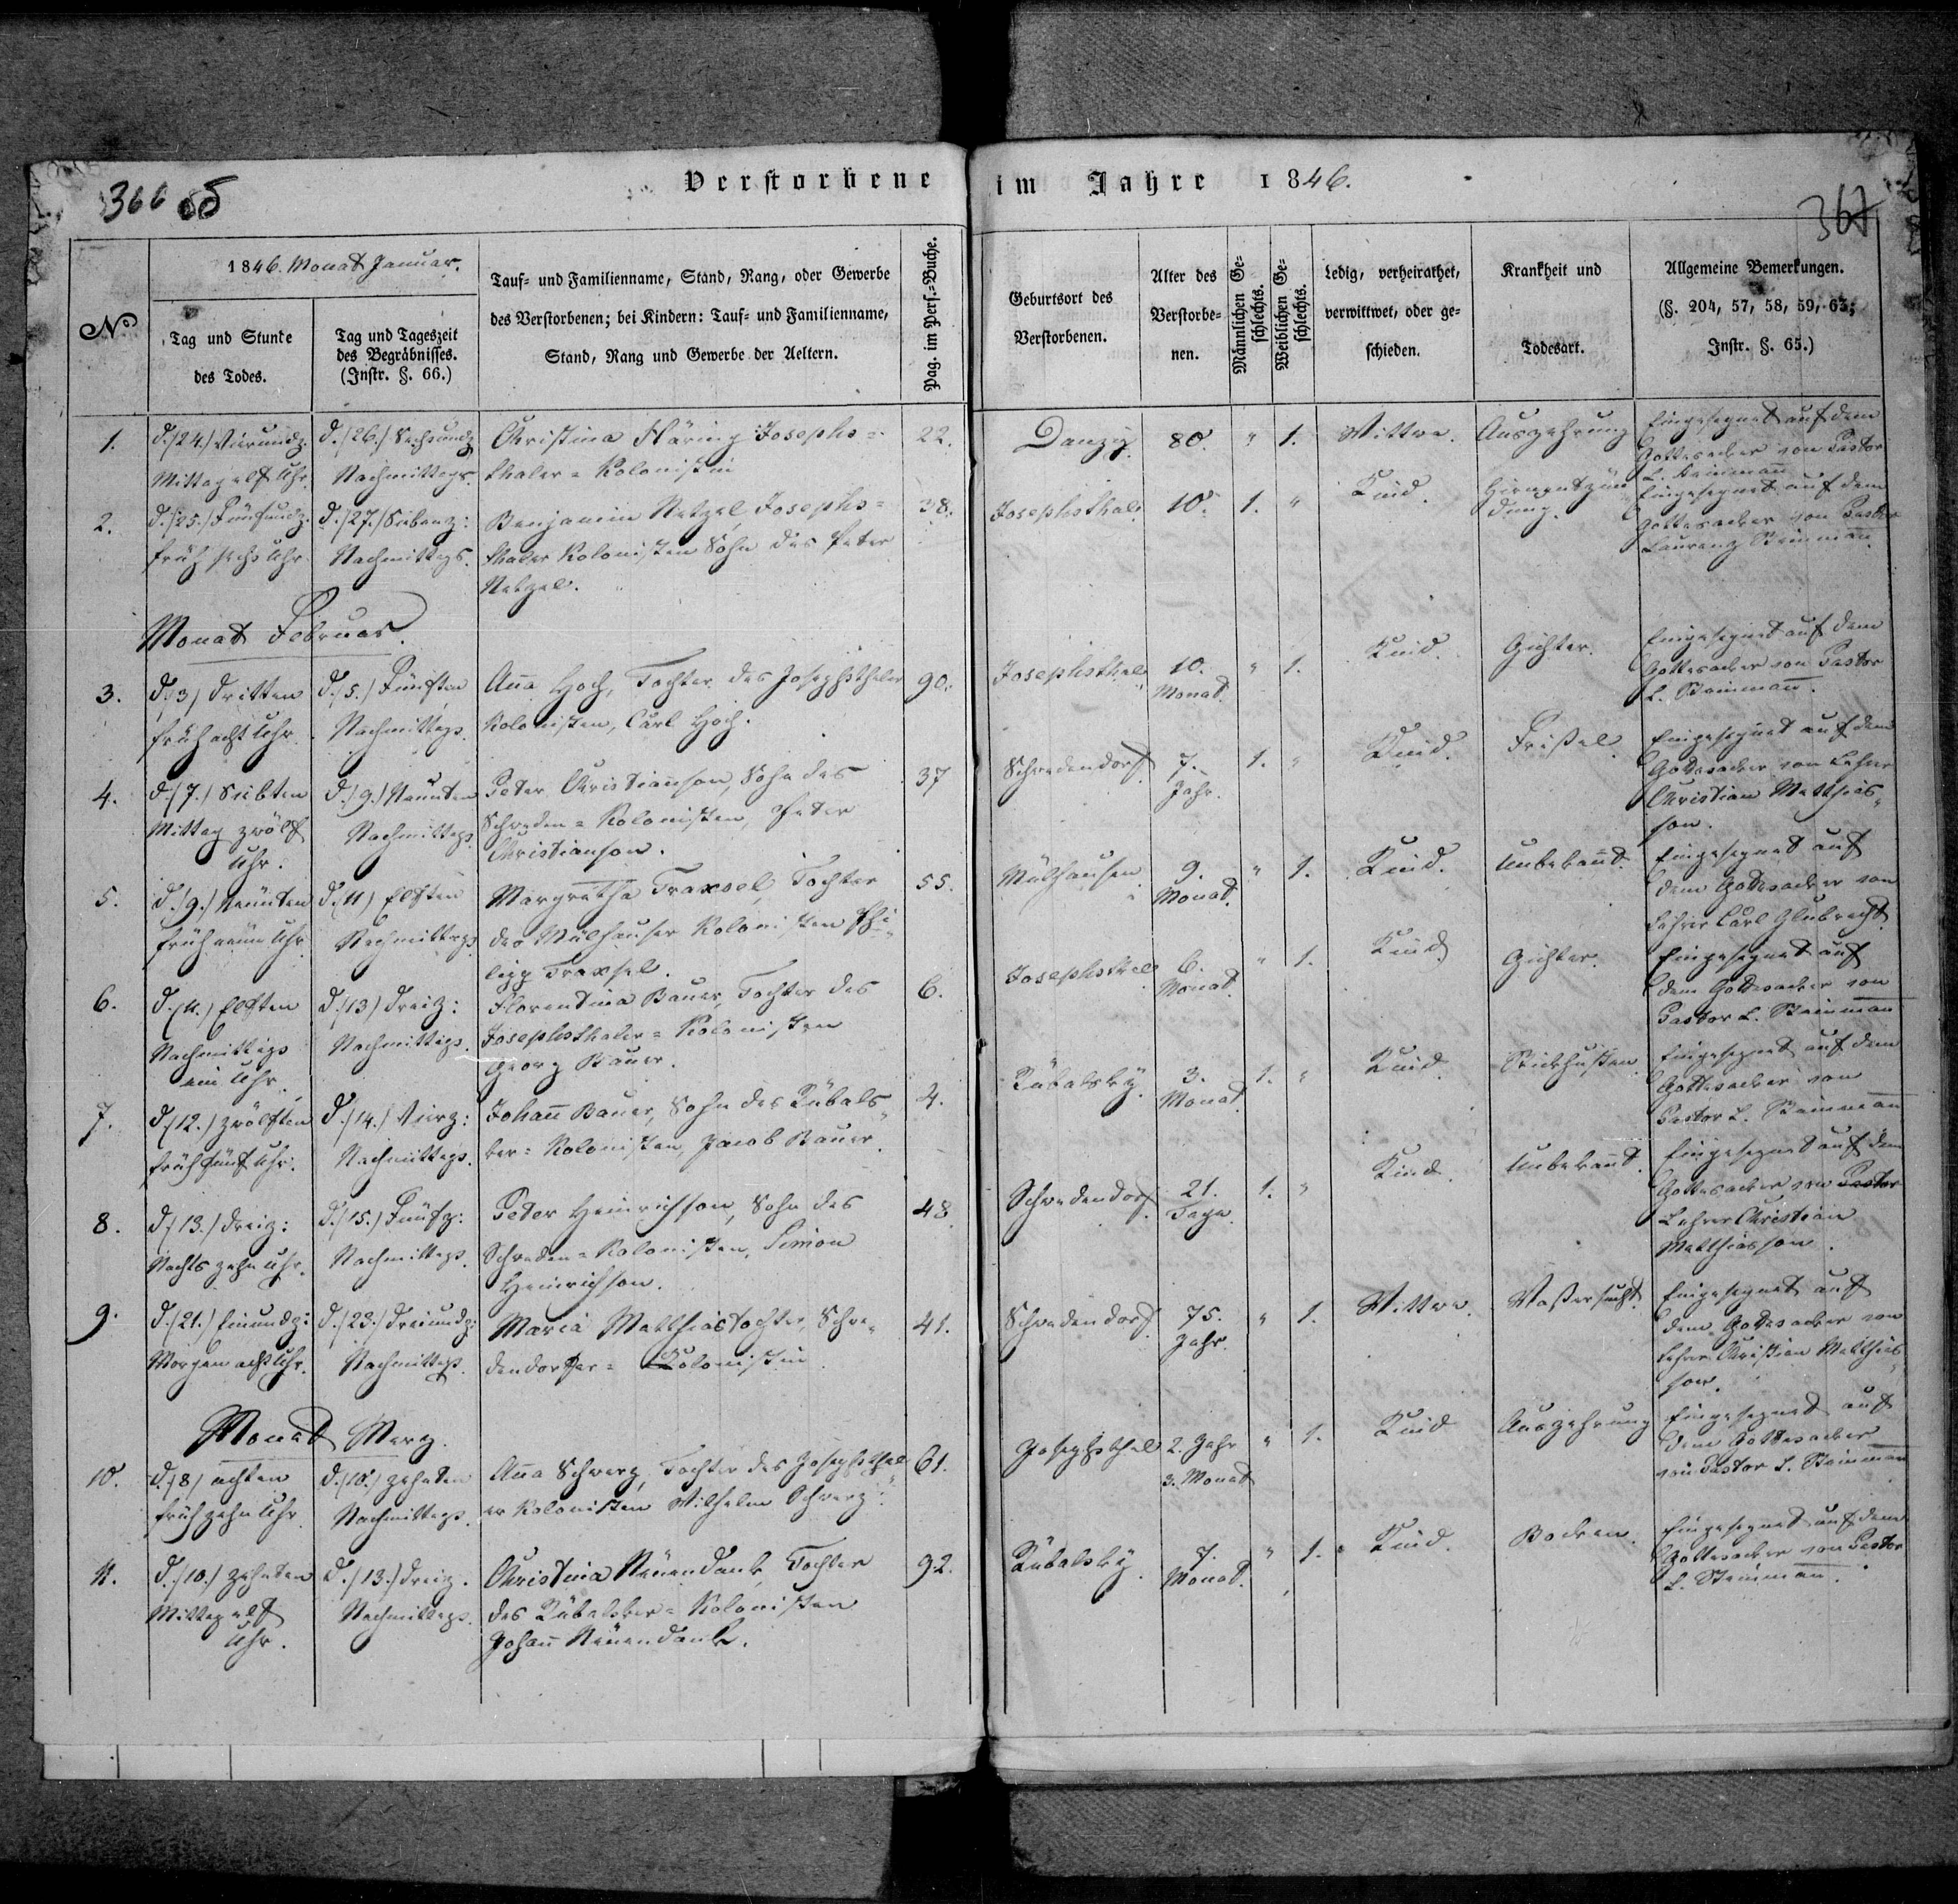 366
Verstorbene im Jahre 1846.
367
N°
1846. Monat Januar.
Tag und Stunde
des Todes.
Tag und Tageszeit
des Begräbnisses.
(Instr. §. 66.)
Tauf- und Familienname, Stand, Rang, oder Gewerbe
des Verstorbenen; bei Kindern: Tauf- und Familienname,
Stand, Rang und Gewerbe der Aeltern.
Pag. im Pers.-Buche.
Geburtsort des
Verstorbenen.
Alter des
Verstorbe-
nen.
Männlichen Ge-
schlechts.
Weiblichen Ge-
schlechts.
Ledig, verheirathet,
verwittwet, oder ge-
schieden.
Krankheit und
Todesart.
Allgemeine Bemerkungen.
(§. 204, 57, 58, 59, 63;
Instr. §. 65.)
1.
d. (24.) Vierundz.
Mittag elf Uhr.
d. (26.) Sechsundz.
Nachmittags.
Christina Häring Josephs=
thaler=Kolonistin
22.
Danzig.
80.
" 1.
Wittwe.
Auszehrung
Eingesegnet auf dem
Gottesacker von Pastor
L. Steinmañ
2.
d. (25.) Fünfundz.
früh sechs Uhr
d. (27.) Siebenz:
Nachmittags.
Benjamin Netzel, Josephs=
thaler Kolonisten Sohn des Peter
Netzel.
38.
Josephsthal.
10.
1. "
Kind.
Hirnentzün
dung.
Eingesegnet auf dem
Gottesacker von Pastor
Laurenz Steinmañ
Monat Februar.
3.
d. (3) dritten
früh acht Uhr
d. (5.) Fünften
Nachmittags.
Aña Hoch, Tochter des Josephsthaler
Kolonisten, Carl Hoch.
90.
Josephsthal
10.
Monat.
" 1.
Kind.
Gichter.
Eingesegnet auf dem
Gottesacker von Pastor
L. Steinmañ.
4.
d. (7.) Siebten
Mittag zwölf
Uhr.
d. (9.) Neunten
Nachmittags.
Peter Christianson, Sohn des
Schweden=Kolonisten, Peter
Christianson.
37
Schwedendorf
7.
Jahr.
1. "
Kind.
Frißel
Eingesegnet auf dem
Gottesacker von Lehrer
Christian Matthias„
son.
5.
d. (9.) Neunten
früh neun Uhr
d. (11) Elften
Nachmittags
Margretha Traxsel, Tochter
des Mülhauser Kolonisten Phi„
lipp Traxsel.
55.
Mülhausen
9.
Monat.
" 1.
Kind.
Unbekañt.
Eingesegnet auf
dem Gottesacker von
Lehrer Carl Glubrecht.
6.
d. (11.) Elften
Nachmittags
ein Uhr.
d. (13) dreiz:
Nachmittags.
Florentina Bauer, Tochter des
Josephsthaler=Kolonisten
Georg Bauer.
6.
Josephsthal
6.
Monat.
" 1.
Kind
Gichter.
Eingesegnet auf
dem Gottesacker von
Pastor L. Steinmañ
7.
d. (12.) zwölften
früh fünf Uhr.
d. (14.) Vierz:
Nachmittags.
Johañ Bauer, Sohn des Rübals„
ker=Kolonisten, Jacob Bauer.
4.
Rübalsky.
3.
Monat
1. "
Kind
Stickhusten
Eingesegnet auf dem
Gottesacker von
Pastor L. Steinmañ
8.
d. (13.) dreiz:
Nachts zehn Uhr.
d. (15.) Fünfz:
Nachmittags.
Peter Heinrichson, Sohn des
Schweden=Kolonisten, Simon
Heinrichson.
48.
Schwedendorf
21.
Tage.
1. "
Kind.
Unbekañt.
Eingesegnet auf dem
Gottesacker von Pastor
Lehrer Christian
Matthiasson.
9.
d. (21.) Einundz:
Morgen acht Uhr.
d. (23.) Dreiundz:
Nachmittags.
Maria Matthiastochter, Schwe„
dendorfer=Kolonistin.
41.
Schwedendorf
75.
Jahr.
" 1.
Wittwe.
Waßersucht.
Eingesegnet auf
dem Gottesacker von
Lehrer Christian Matthias„
son.
Monat Merz.
10.
d. (8) achten
früh zehn Uhr
d. (10.) zehnten
Nachmittags.
Aña Schwarz, Tochter des Josephsthal„
er Kolonisten Wilhelm Schwarz.
61.
Josephsthal
2. Jahr
3. Monat
" 1.
Kind
Auszehrung
Eingesegnet auf
dem Gottesacker
von Pastor L. Steinmañ
11.
d. (10.) zehnten
Mittag elf
Uhr.
d. (13.) dreiz.
Nachmittags.
Christina Neuendank, Tochter
des Rübalsker=Kolonisten
Johañ Neuendank.
92.
Rübalsky.
7.
Monat.
" 1.
Kind.
Bocken.
Eingesegnet auf dem
Gottesacker von Pastor
L. Steinmañ.